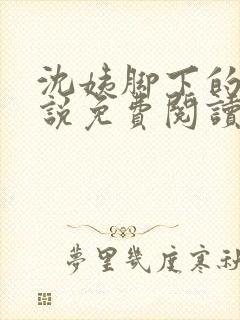 沈姨脚下的
說免費閱讀
夢里幾度寒秋